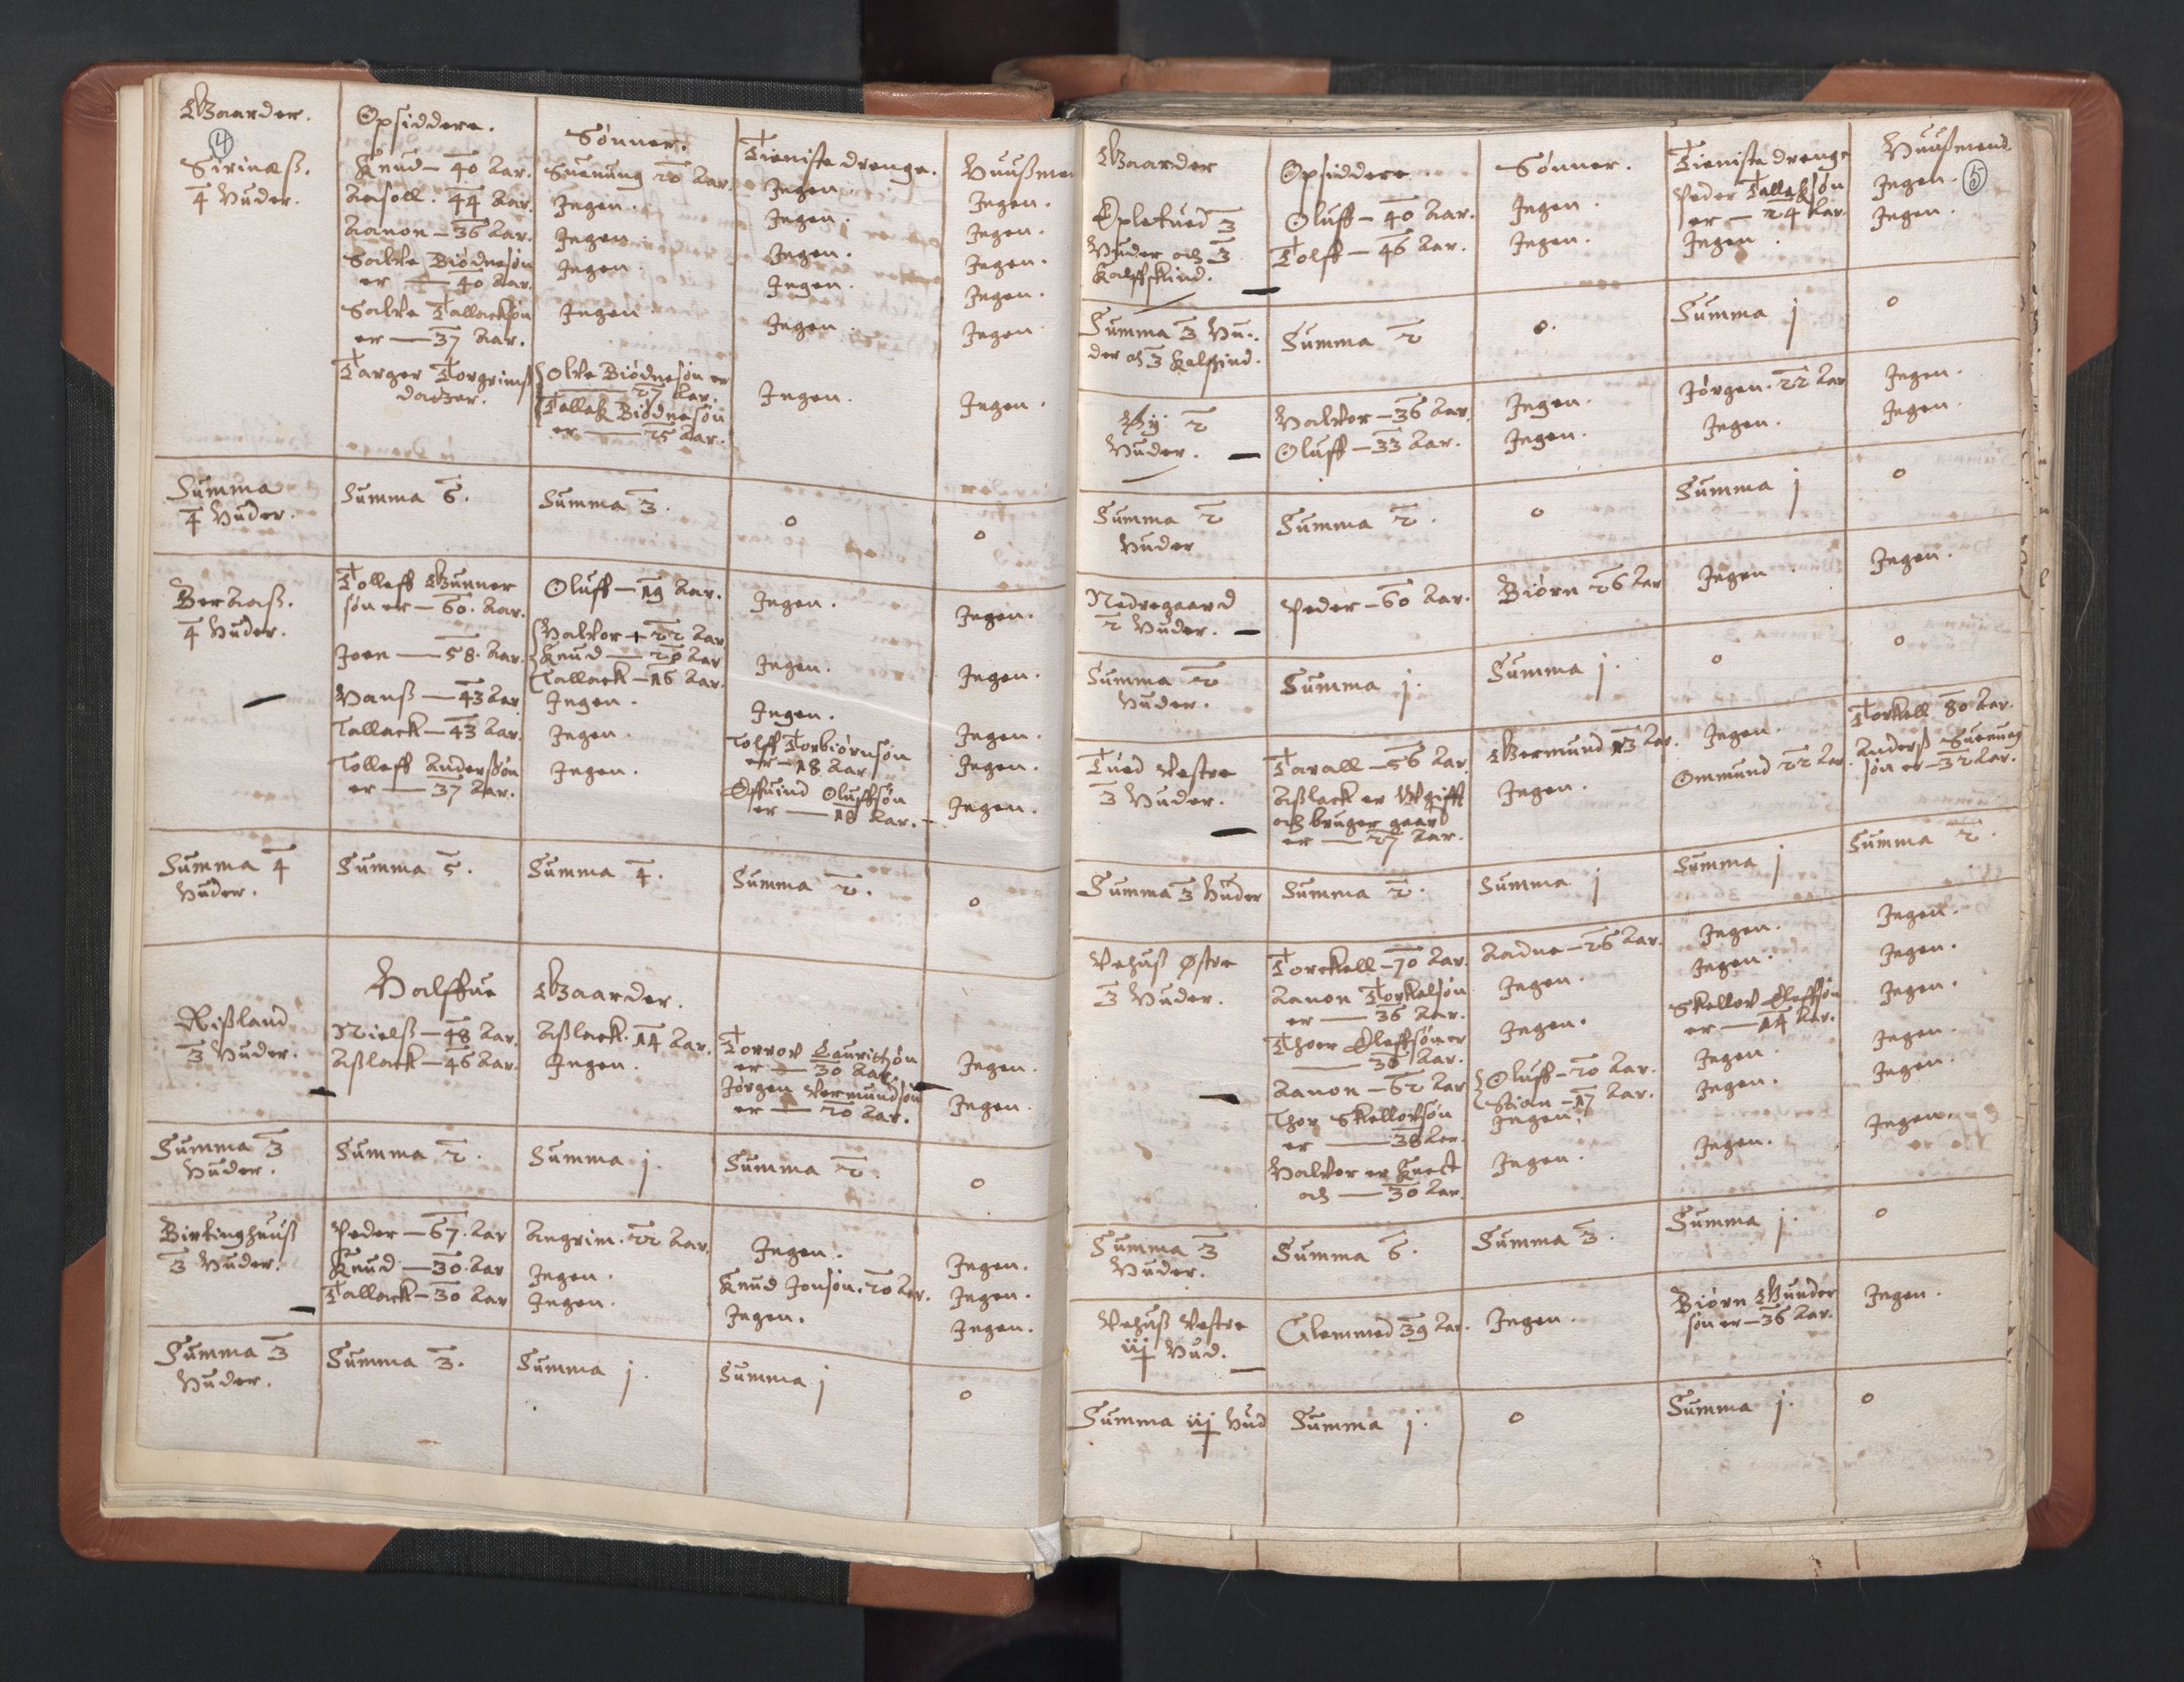 Gaarder.
4
Sirinæß.
4 Huder.
Opsiddere.
Knud – 40 Aar.
Aasoll. 44 Aar.
Aanon – 36 Aar.
Salve Biødnesøn
er — 40 Aar.
Salve Tallacksøn
er — 37 Aar.
Targer Torgrimß
datzer.
Sønner.
Suenung 20 Aar.
Ingen.
Ingen.
Ingen.
Ingen
Olve Biødnesøn er
— 27 Aar.
Tallak Biødnesøn
er — 25 Aar.
Tieniste drenge.
Ingen.
Ingen.
Ingen.
Ingen.
Ingen.
Ingen.
Huußmen
Ingen.
Ingen.
Ingen.
Ingen.
Ingen.
Ingen.
Summa
4 Huder.
Summa 6.
Summa 3.
0
0
Beraaß.
4 Huder.
Tolleff Gunner
søn er – 60. Aar.
Joen — 58. Aar.
Hanß — 43 Aar
Tallack – 43 Aar.
Tolleff Anderßøn
er — 37 Aar.
Oluff – 19 Aar.
Halvor + 22 Aar
Knud — 20 Aar
Tallack – 16 Aar.
Ingen.
Ingen.
Ingen.
Ingen.
Ingen.
Ingen.
Tolff Torbiørnsøn
er – 18 Aar
Øffuind Oluffsøn
er — 18 Aar.
Ingen.
Ingen.
Ingen.
Ingen.
Ingen.
Summa 4
Huder.
Summa 5.
Summa 4.
Summa 2.
0
Halffue Gaarder.
Rißland
3 Huder.
Nielß – 48 Aar.
Aßlack – 46 Aar.
Aßlack. 14 Aar.
Ingen.
Torrov Lauritzøn
er — 30 Aar
Jørgen Vermundsøn
er — 20 Aar.
Ingen.
Ingen.
Summa 3
Huder.
Summa 2.
Summa j.
Summa 2.
0
Birkinghuuß
3 Huder.
Peder – 67. Aar
Knud – 30. Aar
Tallack – 30 Aar
Angrim. 22 Aar.
Ingen.
Ingen.
Ingen.
Knud Jonsøn. 20 Aar.
Ingen.
Ingen.
Ingen.
Ingen.
Summa 3
Huder.
Summa 3.
Summa j.
Summa j
0
Gaarder
Epletued 3
Huder och 3
Kalffskind.
Opsiddere
Oluff – 40 Aar.
Tolff – 46 Aar.
Sønner.
Ingen.
Ingen.
Tieniste drenge
Peder Tallaksøn
er – 24 Aar.
Ingen.
Huußmend
Ingen.
5
Ingen.
Summa 3 Hu-
der och 3 Kalfskind.
Summa 2
0.
Summa j
0
By 2
Huder.
Halvor – 36 Aar.
Oluff – 33 Aar.
Ingen.
Ingen.
Jørgen. 22 Aar
Ingen.
Ingen.
Ingen.
Summa 2
Huder
Summa 2.
0
Summa j
0
Nedregaard
2 Huder.
Peder – 60 Aar.
Biørn 26 Aar
Ingen.
Ingen.
Summa 2
Huder.
Summa j.
Summa j.
0
0
Tued Vestre
3 Huder.
Tarall – 56 Aar.
Aßlack er Vgifft
och bruger gaard
er — 27 Aar.
Germund 13 Aar.
Ingen.
Ingen.
Ommund 22 Aar.
Torkell 80 Aar.
Anderß Suenung
søn er – 32 Aar.
Summa 3 Huder
Summa 2.
Summa j
Summa j
Summa 2.
Vehuß Østre
3 Huder.
Torckell – 70 Aar.
Aanon Torkelsøn
er — 36 Aar.
Thoer Oleffsøn er
— 36 Aar.
Aanon – 62 Aar
Thor Skellovsøn
er — 38 Aar.
Halvor er Knect
och — 30 Aar.
Aadne – 26 Aar.
Ingen.
Ingen.
Oluff – 20 Aar.
Stian – 17 Aar.
Ingen.
Ingen.
Ingen.
Ingen.
Skellov Oleffsøn
er — 14 Aar.
Ingen.
Ingen.
Ingen.
Ingen.
Ingen.
Ingen.
Ingen.
Ingen.
Ingen.
Summa 3
Huder.
Summa 6.
Summa 3.
Summa j.
0
Vehuß Vestre
iij Hud.
Clemmed 39 Aar.
Ingen.
Biørn Gunder
søn er – 36 Aar.
Ingen.
Summa iij Hud
Summa j.
0
Summa j.
0